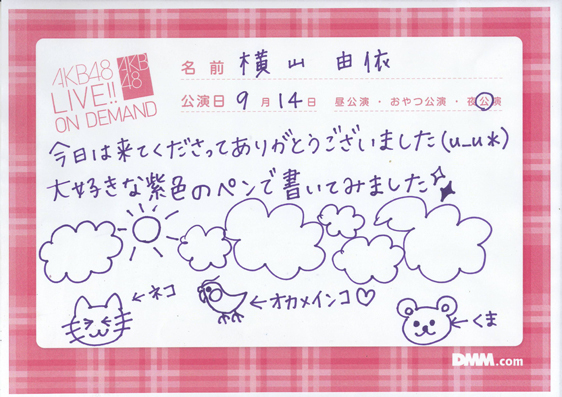 AKB48
LIVE!!
ON DEMAND
AKB
48
名前 横山 由依
公演日 9月14日 昼公演・おやつ公演・夜公演
今日は来てくださってありがとうございました(u_u*)
大好きな紫色のペンで書いてみました
←ネコ
←オカメインコ♡
←くま
DMM.com